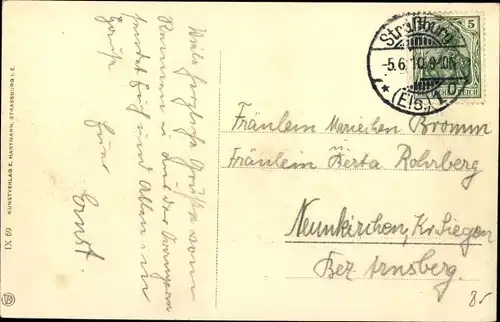 Viele herzliche Grüße vom
Rennen in
sendet Euch und Allen im
Hause
Euer
Ernst.
KUNSTVERLAG E. HARTMANN, STRASSBURG I. E.
IX 69
Straßburg
-5.6.10.9-10N
* (Els.) 1
5
DEUTSCHES REICH
Fräulein Mariechen Bromm
Fräulein Berta Rohrberg
Neunkirchen, Kr. Siegen
Bez Arnsberg.
8.-